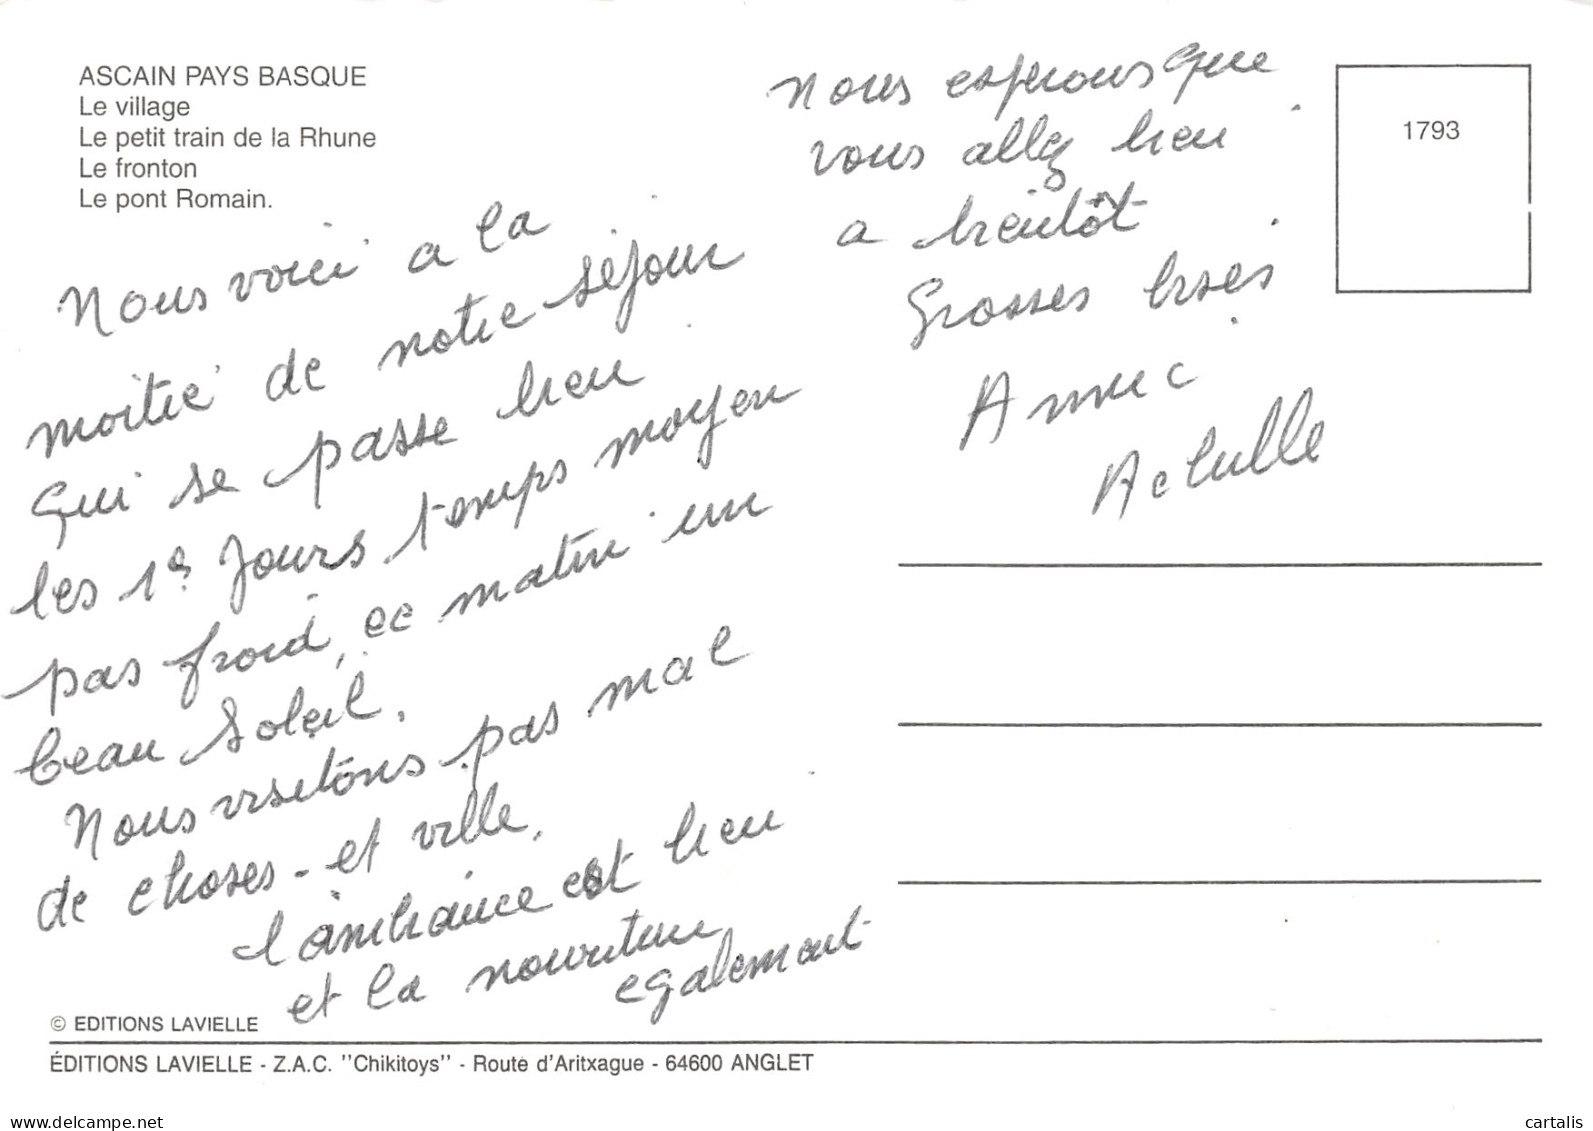 ASCAIN PAYS BASQUE
Le village
Le petit train de la Rhune
Le fronton
Le pont Romain.
Nous voici a la
moitié de notre séjour
qui se passe bien
les 1es jours temps moyen
pas froid, ce matin un
beau soleil.
Nous visitons pas mal
de choses - et ville.
l'ambiance est bien
et la nourriture
egalement
nous esperons que
vous allez bien
a bientôt
Grosses bises
Annie
Achille
1793
© EDITIONS LAVIELLE
ÉDITIONS LAVIELLE - Z.A.C. "Chikitoys" - Route d'Aritxague - 64600 ANGLET
www.delcampe.net
cartalis